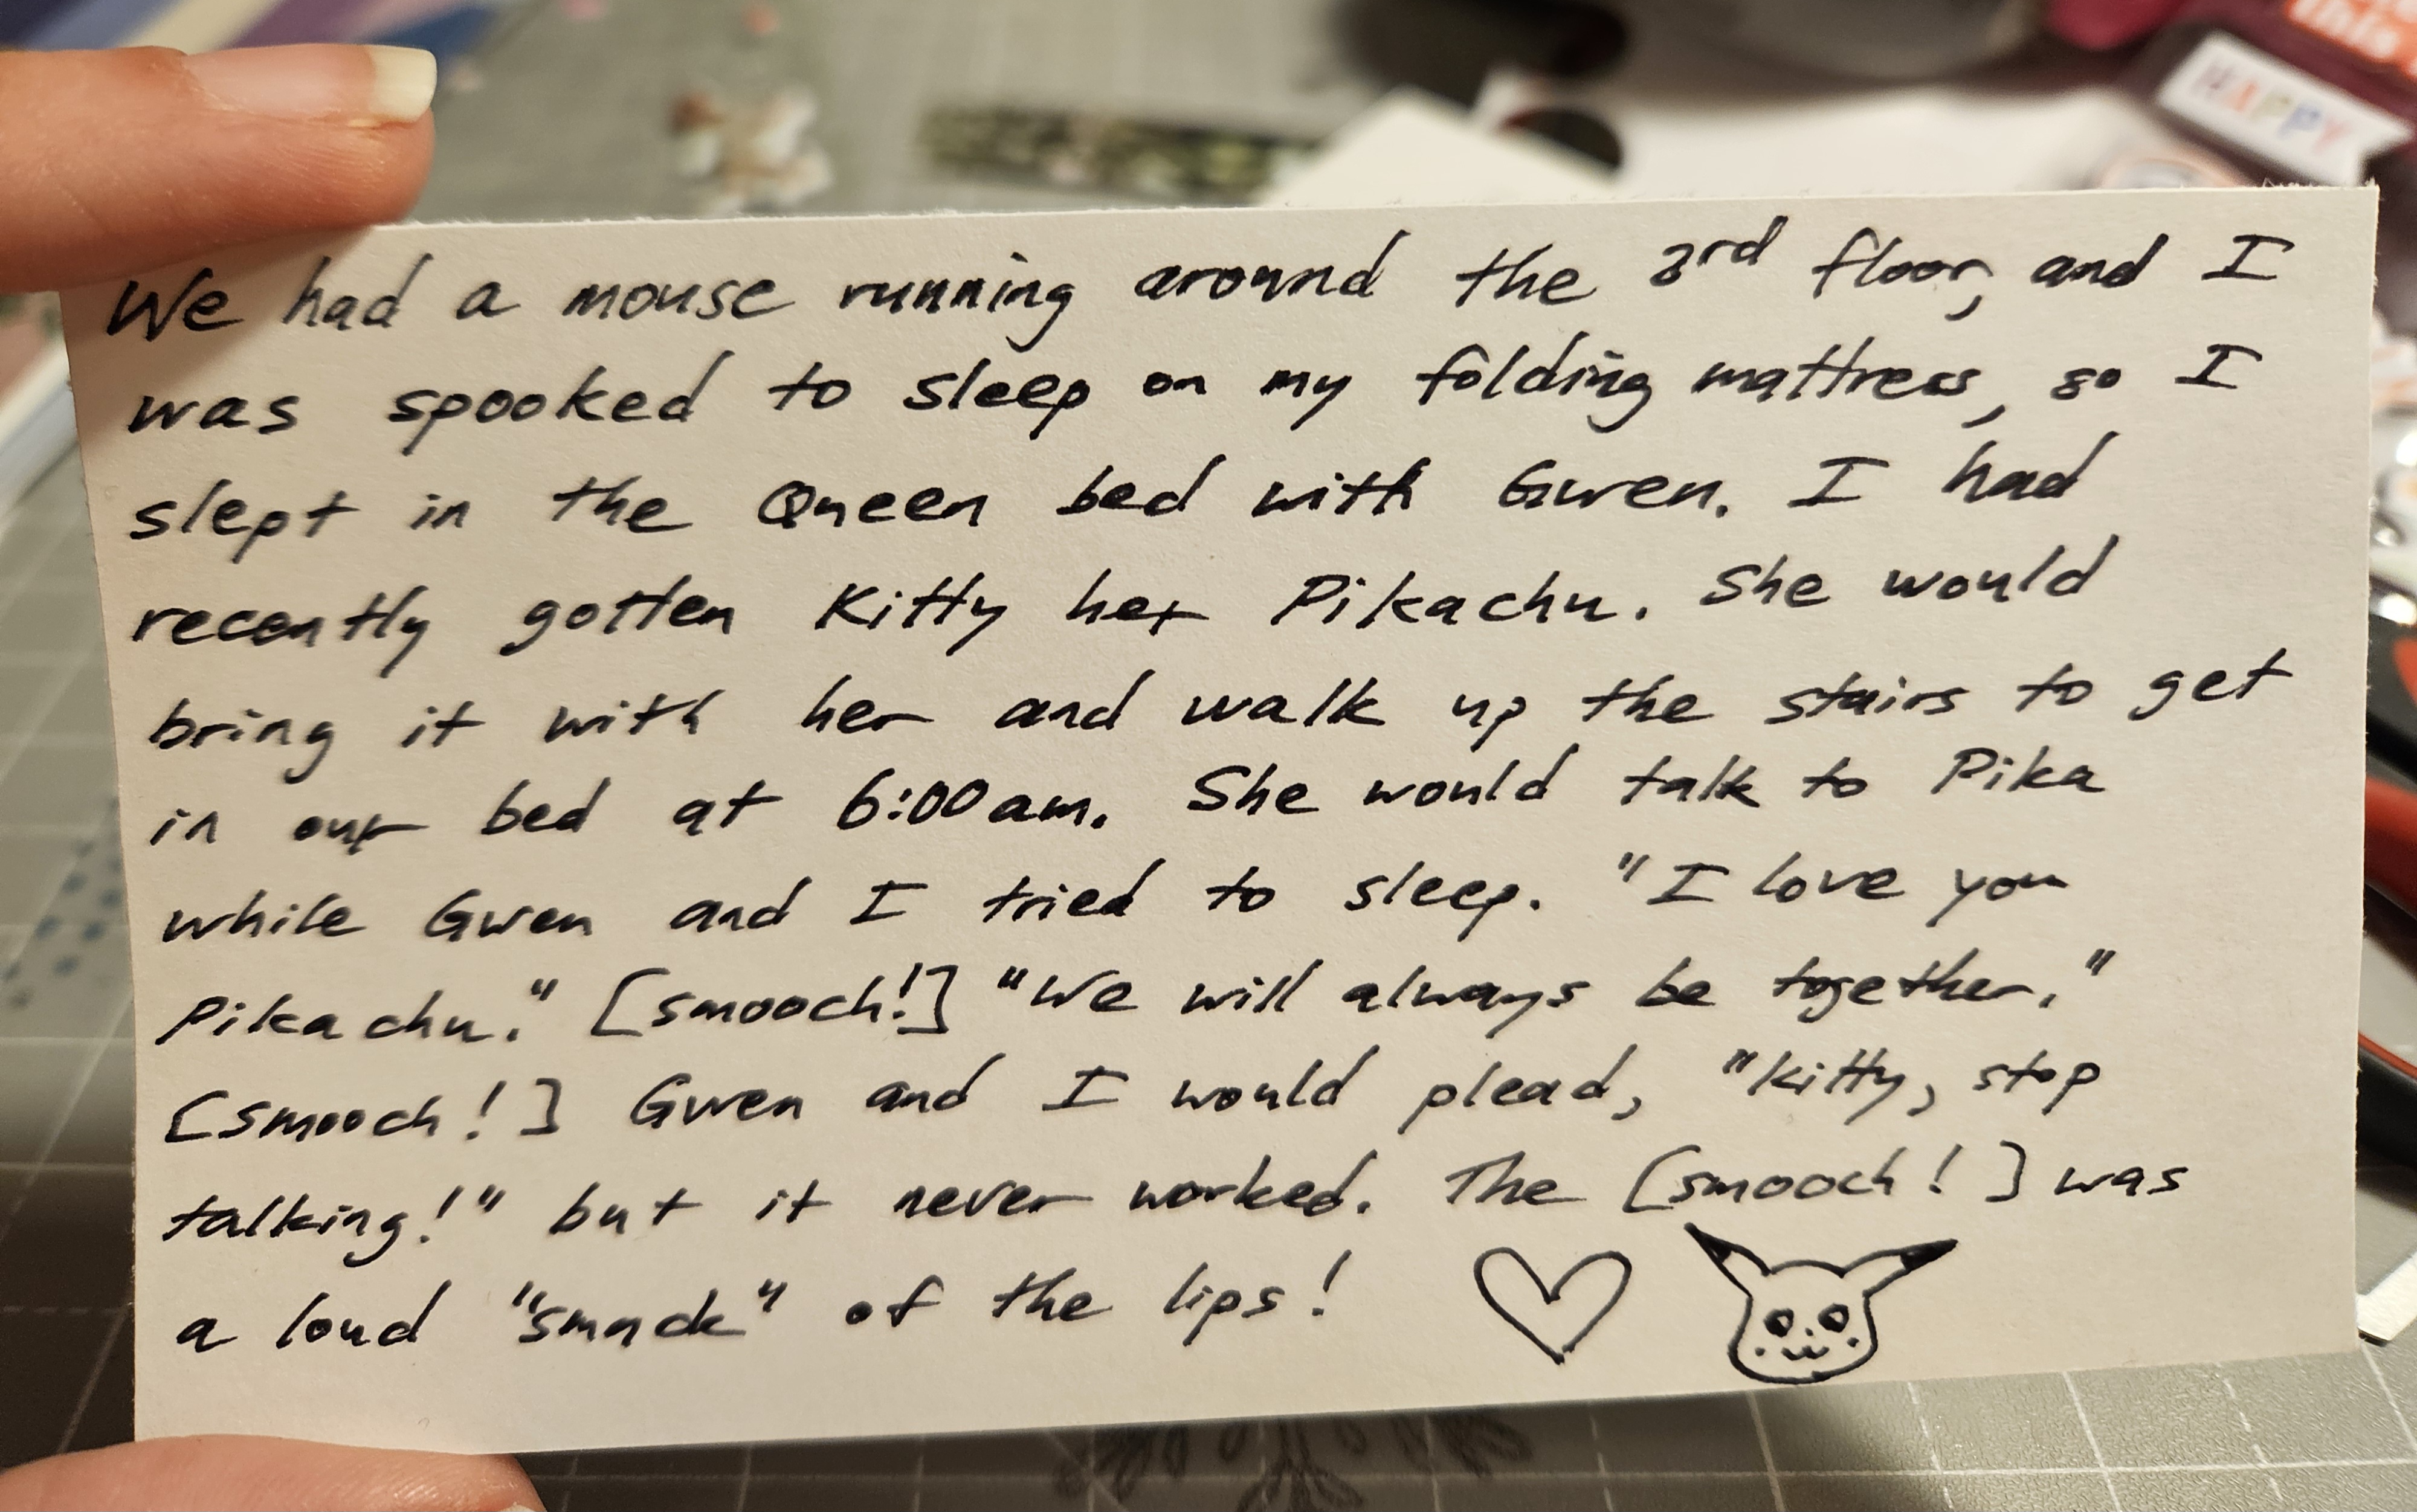 this
HAPPY
We had a mouse running around the 3rd floor, and I
was spooked to sleep on my folding mattress, so I
slept in the Queen bed with Gwen. I had
recently gotten Kitty her Pikachu. She would
bring it with her and walk up the stairs to get
in our bed at 6:00am. She would talk to Pika
while Gwen and I tried to sleep. "I love you
Pikachu." [smooch!] "We will always be together."
[smooch!] Gwen and I would plead, "Kitty, stop
talking!" but it never worked. The [smooch!] was
a loud "smack" of the lips!